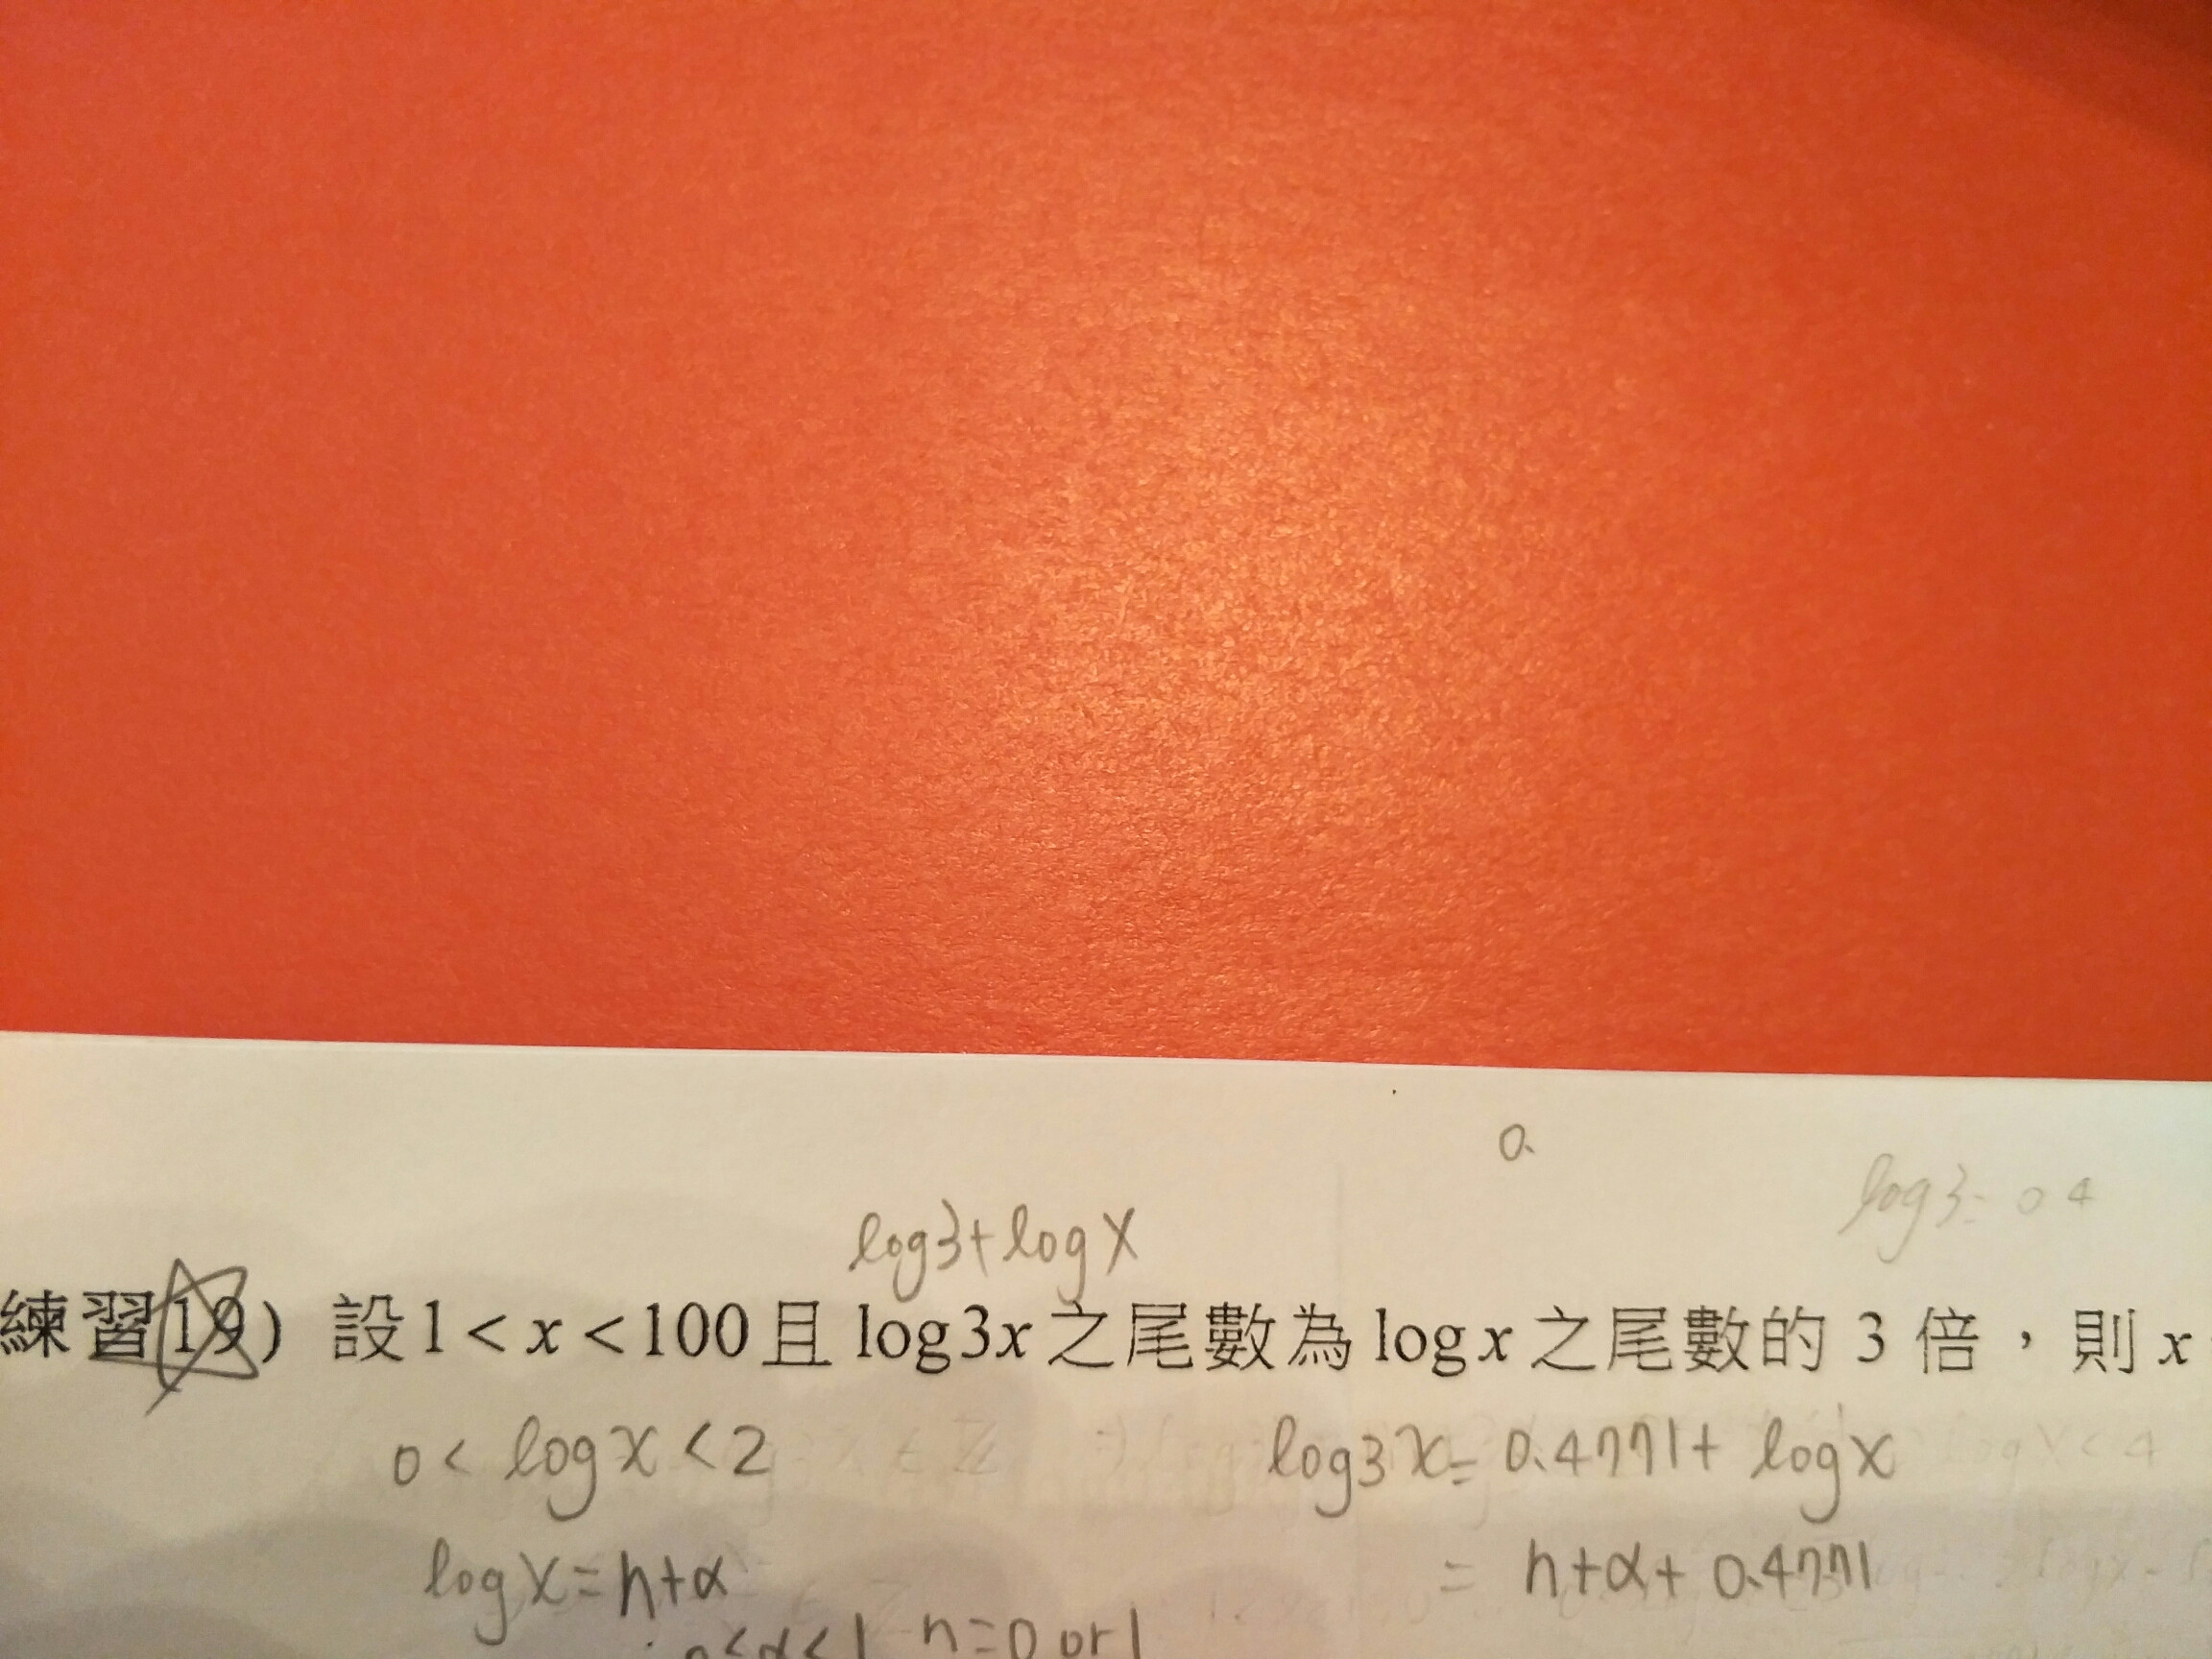 0.
log3= 0 4
log3+logx
練習(19) 設1<x<100且log3x之尾數為logx之尾數的 3 倍，則x
0<logx<2 log3x=0.4771+logx
logx=n+α = n+α+0.4771
0<α<1 n=0 or 1